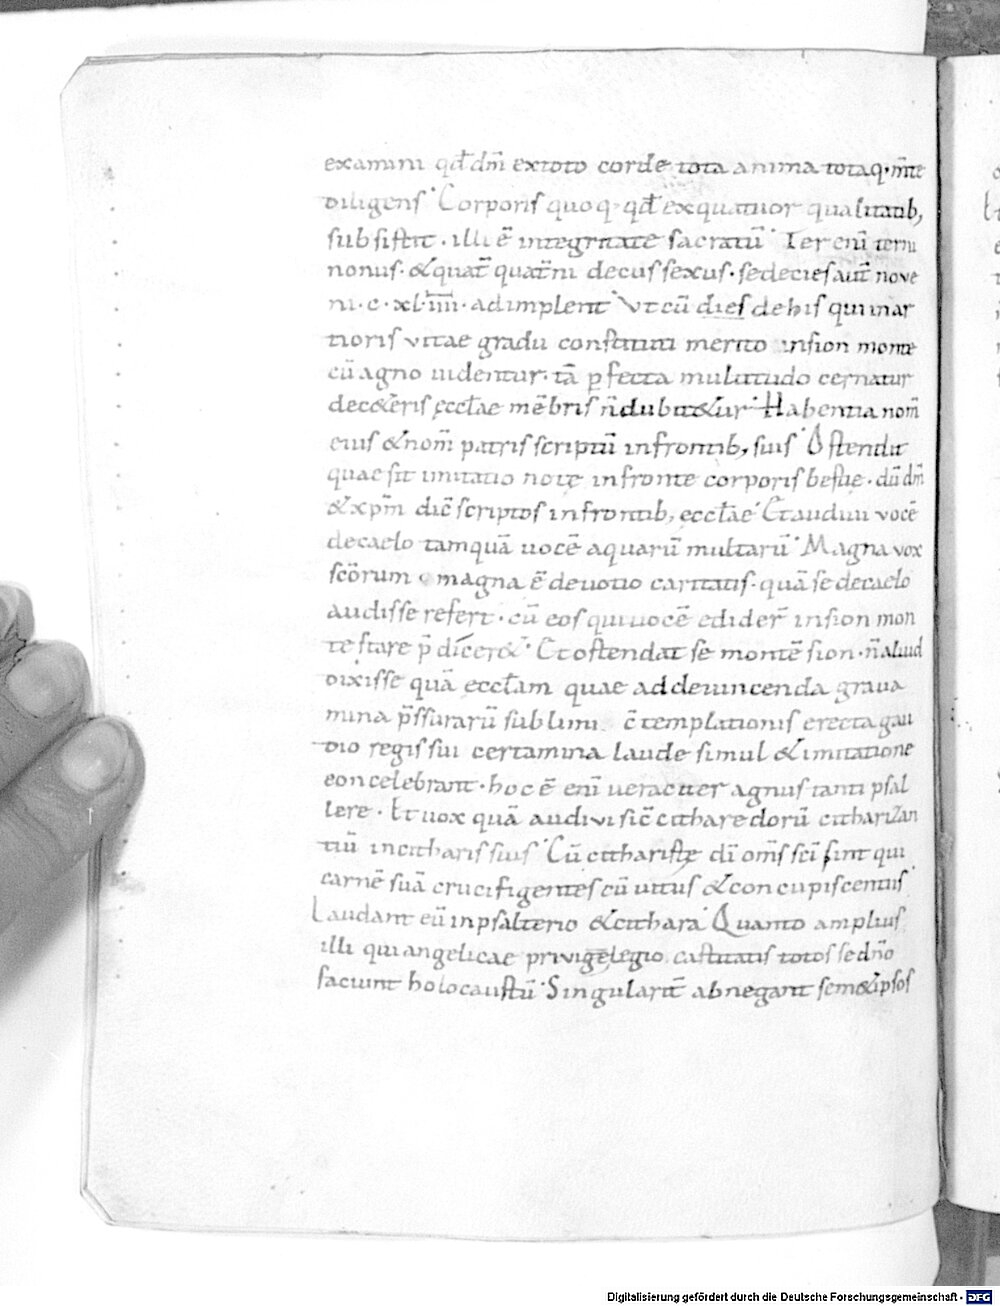 examini qđ dm̄ ex toto corde tota anima totaq· m̄te
diligens· Corporis quoq· qđ ex quattuor qualitatib,
subsistit· illi ē integritate sacratū· Ter enī terni
nonus· & quat̄ quat̄ni decus sexus· sedecies aut̄ nove
ni· c· xl· iiii· adimplent· Vt cū dies de his qui in ar
tioris vitae gradu constituti merito in sion monte
cū agno uidentur· tā pfecta multitudo cernatur
de c&eris eccłae mēbris n̄ dubit&ur· Habentia nom̄
eius & nom̄ patris scriptū in frontib, suis· Ostendit
quae sit imitatio note in fronte corporis bestie· dū dm̄
& xpm̄ dic̄ scriptos in frontib, eccłae· Et audivi vocē
de caelo tamquā uocē aquarū multarū· Magna vox
scōrum magna ē devotio caritatis· quā se de caelo
audisse refert· cū eos qui uocē edider̄ in sion mon
te stare p̄dicer&· Et ostendat se montē sion· n̄ aliud
dixisse quā eccłam quae ad devincenda grava
mina p̄ssurarū sublimi c̄templationis erecta gau
dio regis sui certamina laude simul & imitatione
concelebrant· hoc ē enī veraciter agnus tanti psal
lere· Et uox quā audivi sic̄ citharedorū citharizan
tiū in citharis suis· Cū citharistę dī om̄s scī sint qui
carnē suā crucifigentes cū vitiis & concupiscentiis·
Laudant eū in psalterio & cithara· Quanto amplius
illi qui angelicae privigelegio castitatis totos se dn̄o
faciunt holocaustū· Singularit̄ abnegant sem&ipsos
Digitalisierung gefördert durch die Deutsche Forschungsgemeinschaft - DFG